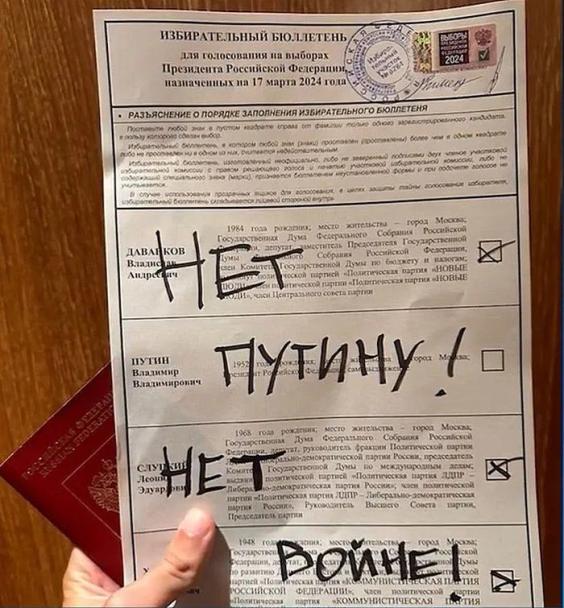 ИЗБИРАТЕЛЬНЫЙ БЮЛЛЕТЕНЬ
для голосования на выборах
Президента Российской Федерации,
назначенных на 17 марта 2024 года
ВЫБОРЫ
2024
РАЗЪЯСНЕНИЕ О ПОРЯДКЕ ЗАПОЛНЕНИЯ ИЗБИРАТЕЛЬНОГО БЮЛЛЕТЕНЯ
Поставьте любой знак в пустом квадрате справа от фамилии только одного зарегистрированного кандидата,
в пользу которого сделан выбор.
Избирательный бюллетень, в котором любой знак (знаки) проставлен (проставлены) более чем в одном квадрате
либо не проставлен ни в одном из них, считается недействительным.
Избирательный бюллетень, изготовленный неофициально, либо не заверенный подписями двух членов участковой
избирательной комиссии с правом решающего голоса и печатью участковой избирательной комиссии, либо не
содержащий специального знака (марки), признается бюллетенем неустановленной формы и при подсчете голосов не
учитывается.
В случае использования прозрачных ящиков для голосования, в целях защиты тайны голосования избирателя,
избирательный бюллетень складывается лицевой стороной внутрь.
ДАВАНКОВ
Владислав
Андреевич
1984 года рождения; место жительства – город Москва;
Государственная Дума Федерального Собрания Российской
депутат, заместитель Председателя Государственной
Думы Собрания Российской
член Комитета Государственной Думы по бюджету и налогам;
политической партией «Политическая партия «НОВЫЕ
ЛЮДИ», член политической партии «Политическая партия «НОВЫЕ
ЛЮДИ», член Центрального совета партии
НЕТ
ПУТИН
Владимир
Владимирович
1952 рождения; место город Москва;
Президент
ПУТИНУ!
СЛУЦКИЙ
Леонид
Эдуардович
1968 года рождения; место жительства – город Москва;
Государственная Дума Федерального Собрания Российской
Федерации, депутат, руководитель фракции Политической партии
партии России, председатель
Комитета Государственной Думы по международным делам;
политической партией «Политическая партия ЛДПР –
Либерально-демократическая партия России»; член политической
партии «Политическая партия ЛДПР – Либерально-демократическая
партия России», Руководитель Высшего Совета партии,
Председатель партии
НЕТ
1948 года место жительства – город Москва;
Российской
ВОЙНЕ!
партией «Политическая партия «КОММУНИСТИЧЕСКАЯ ПАРТИЯ
РОССИЙСКОЙ ФЕДЕРАЦИИ», член политической партии
«Политическая партия «КОММУНИСТИЧЕСКАЯ ПАРТИЯ